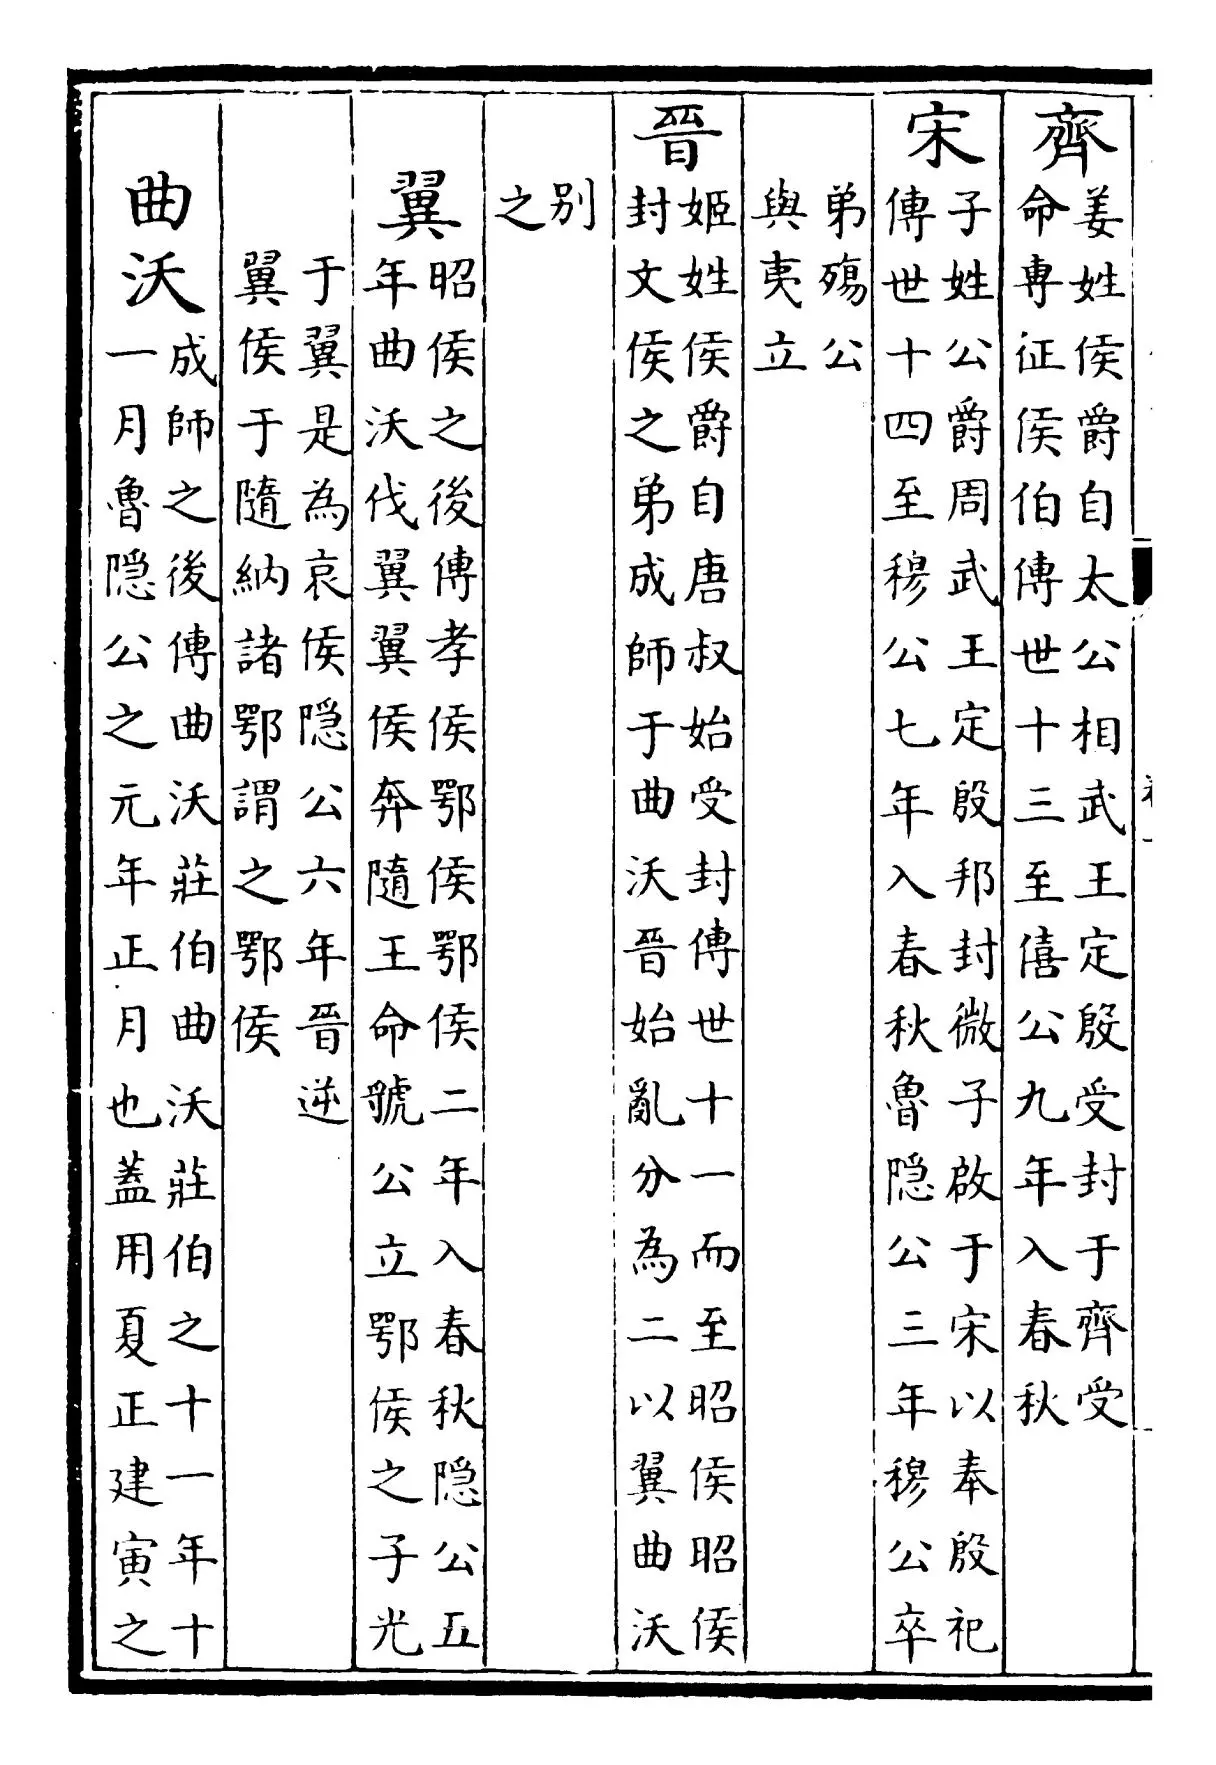 齊
姜姓侯爵自太公相武王定殷受封于齊受
命專征侯伯傳世十三至僖公九年入春秋
宋
子姓公爵周武王定殷邦封微子啟于宋以奉殷祀
傳世十四至穆公七年入春秋魯隐公三年穆公卒
弟殤公
與夷立
晉
姬姓侯爵自唐叔始受封傳世十一而至昭侯昭侯
封文侯之弟成師于曲沃晉始亂分為二以翼曲沃
别
之
翼
昭侯之後傳孝侯鄂侯鄂侯二年入春秋隐公五
年曲沃伐翼翼侯奔隨王命虢公立鄂侯之子光
于翼是為哀侯隐公六年晉逆
翼侯于隨納諸鄂謂之鄂侯
曲沃
成師之後傳曲沃莊伯曲沃莊伯之十一年十
一月魯隐公之元年正月也蓋用夏正建寅之